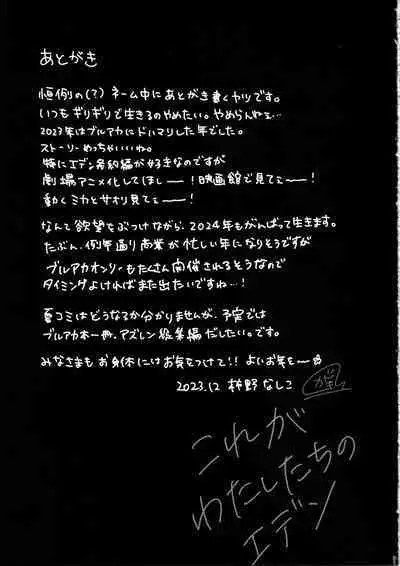 あとがき
恒例の(?)ネーム中にあとがき書くヤツです。
いつもギリギリで生きるのやめたい。やめらんねェ…
2023年はブルアカにドハマりした年でした。
ストーリーめっちゃいいね。
特にエデン条約編が好きなのですが
劇場アニメ化してほしーー!映画館で見てェーー!
動くミカとサオリ見てェーー!
なんて欲望をぶつけながら、2024年もがんばって生きます。
たぶん、例年通り商業が忙しい年になりそうですが
ブルアカオンリーもたくさん開催されるそうなので
タイミングよければまた出たいですね…!
夏コミはどうなるか分かりませんが、予定では
ブルアカ本一冊、アズレン総集編だしたい。です。
みなさまも お身体にはお気をつけて!! よいお年を〜
2023.12 柿野なしこ
これが
わたしたちの
エデン